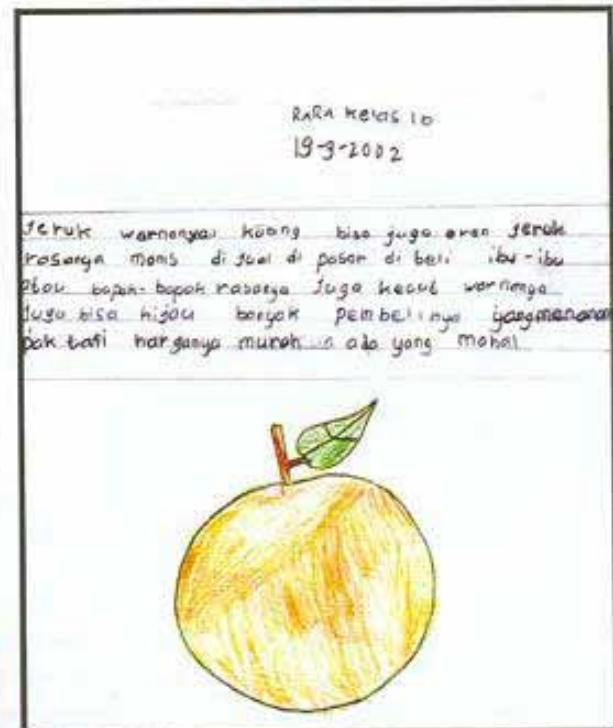 RARA kelas 1b
19-9-2002
Jeruk warnanya kuang bisa juga oren jeruk
rasanya manis di jual di pasar di beli ibu-ibu
atau bapak-bapak rasanya juga kecut warnanya
juga bisa hijau banyak pembelinya yang menanam
pak tati harganya murah ada yang mahal